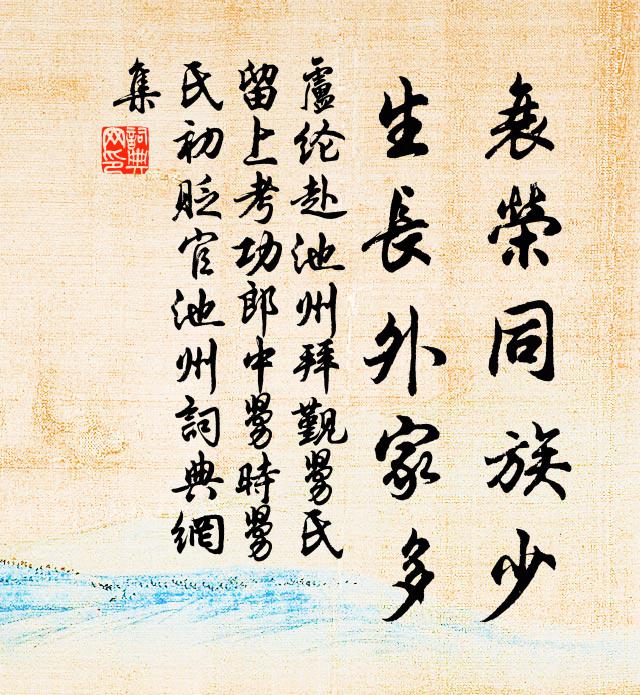 衰榮同族少
生長外家多
盧纶赴池州拜覲舅氏
留上考功郎中舅時舅
氏初貶官池州詞典網
集
詞典网印